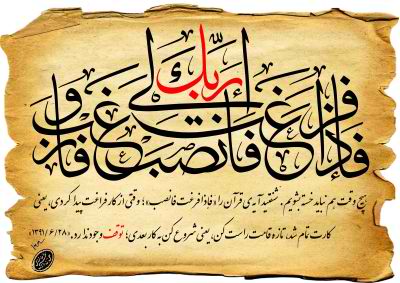 فإذا فرغت فانصب وإلى ربّك فارغب
هیچ وقت هم نباید خسته بشویم. شنفتید آیه‌ی قرآن را «فاذا فرغت فانصب»؛ وقتی از کار فراغت پیدا کردی، یعنی
کارت تمام شد، تازه قامت راست کن، یعنی شروع کن به کار بعدی؛ توقف وجود ندارد. «۱۳۹۱/۶/۲۸»